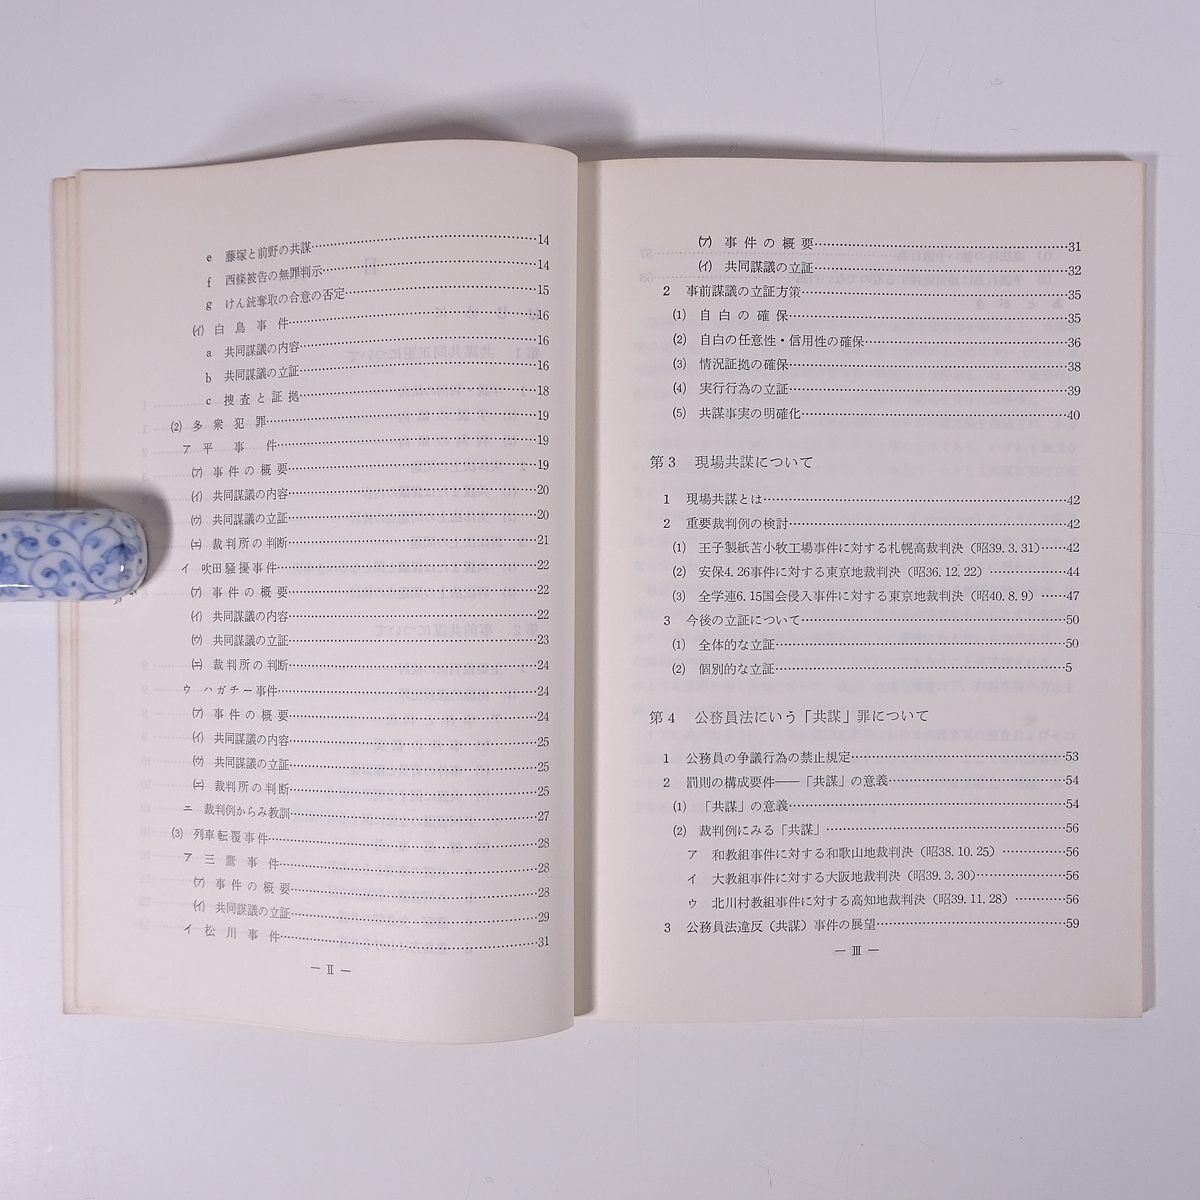 e 藤塚と前野の共謀……14
f 西條被告の無罪判示……14
g けん銃奪取の合意の否定……15
(イ) 白鳥事件……16
a 共同謀議の内容……16
b 共同謀議の立証……16
c 捜査と証拠……18
(2) 多衆犯罪……19
ア 平事件……19
(ア) 事件の概要……19
(イ) 共同謀議の内容……20
(ウ) 共同謀議の立証……20
(エ) 裁判所の判断……21
イ 吹田騒擾事件……22
(ア) 事件の概要……22
(イ) 共同謀議の内容……22
(ウ) 共同謀議の立証……23
(エ) 裁判所の判断……24
ウ ハガチー事件……24
(ア) 事件の概要……24
(イ) 共同謀議の内容……25
(ウ) 共同謀議の立証……25
(エ) 裁判所の判断……25
エ 裁判例からみ教訓……27
(3) 列車転覆事件……28
ア 三鷹事件……28
(ア) 事件の概要……28
(イ) 共同謀議の立証……29
イ 松川事件……31
— II —
(ア) 事件の概要……31
(イ) 共同謀議の立証……32
2 事前謀議の立証方策……35
(1) 自白の確保……35
(2) 自白の任意性・信用性の確保……36
(3) 情況証拠の確保……38
(4) 実行行為の立証……39
(5) 共謀事実の明確化……40
第3 現場共謀について
1 現場共謀とは……42
2 重要裁判例の検討……42
(1) 王子製紙苫小牧工場事件に対する札幌高裁判決（昭39.3.31）……42
(2) 安保4.26事件に対する東京地裁判決（昭36.12.22）……44
(3) 全学連6.15国会侵入事件に対する東京地裁判決（昭40.8.9）……47
3 今後の立証について……50
(1) 全体的な立証……50
(2) 個別的な立証……5
第4 公務員法にいう「共謀」罪について
1 公務員の争議行為の禁止規定……53
2 罰則の構成要件——「共謀」の意義……54
(1) 「共謀」の意義……54
(2) 裁判例にみる「共謀」……56
ア 和教組事件に対する和歌山地裁判決（昭38.10.25）……56
イ 大教組事件に対する大阪地裁判決（昭39.3.30）……56
ウ 北川村教組事件に対する高知地裁判決（昭39.11.28）……56
3 公務員法違反（共謀）事件の展望……59
— III —